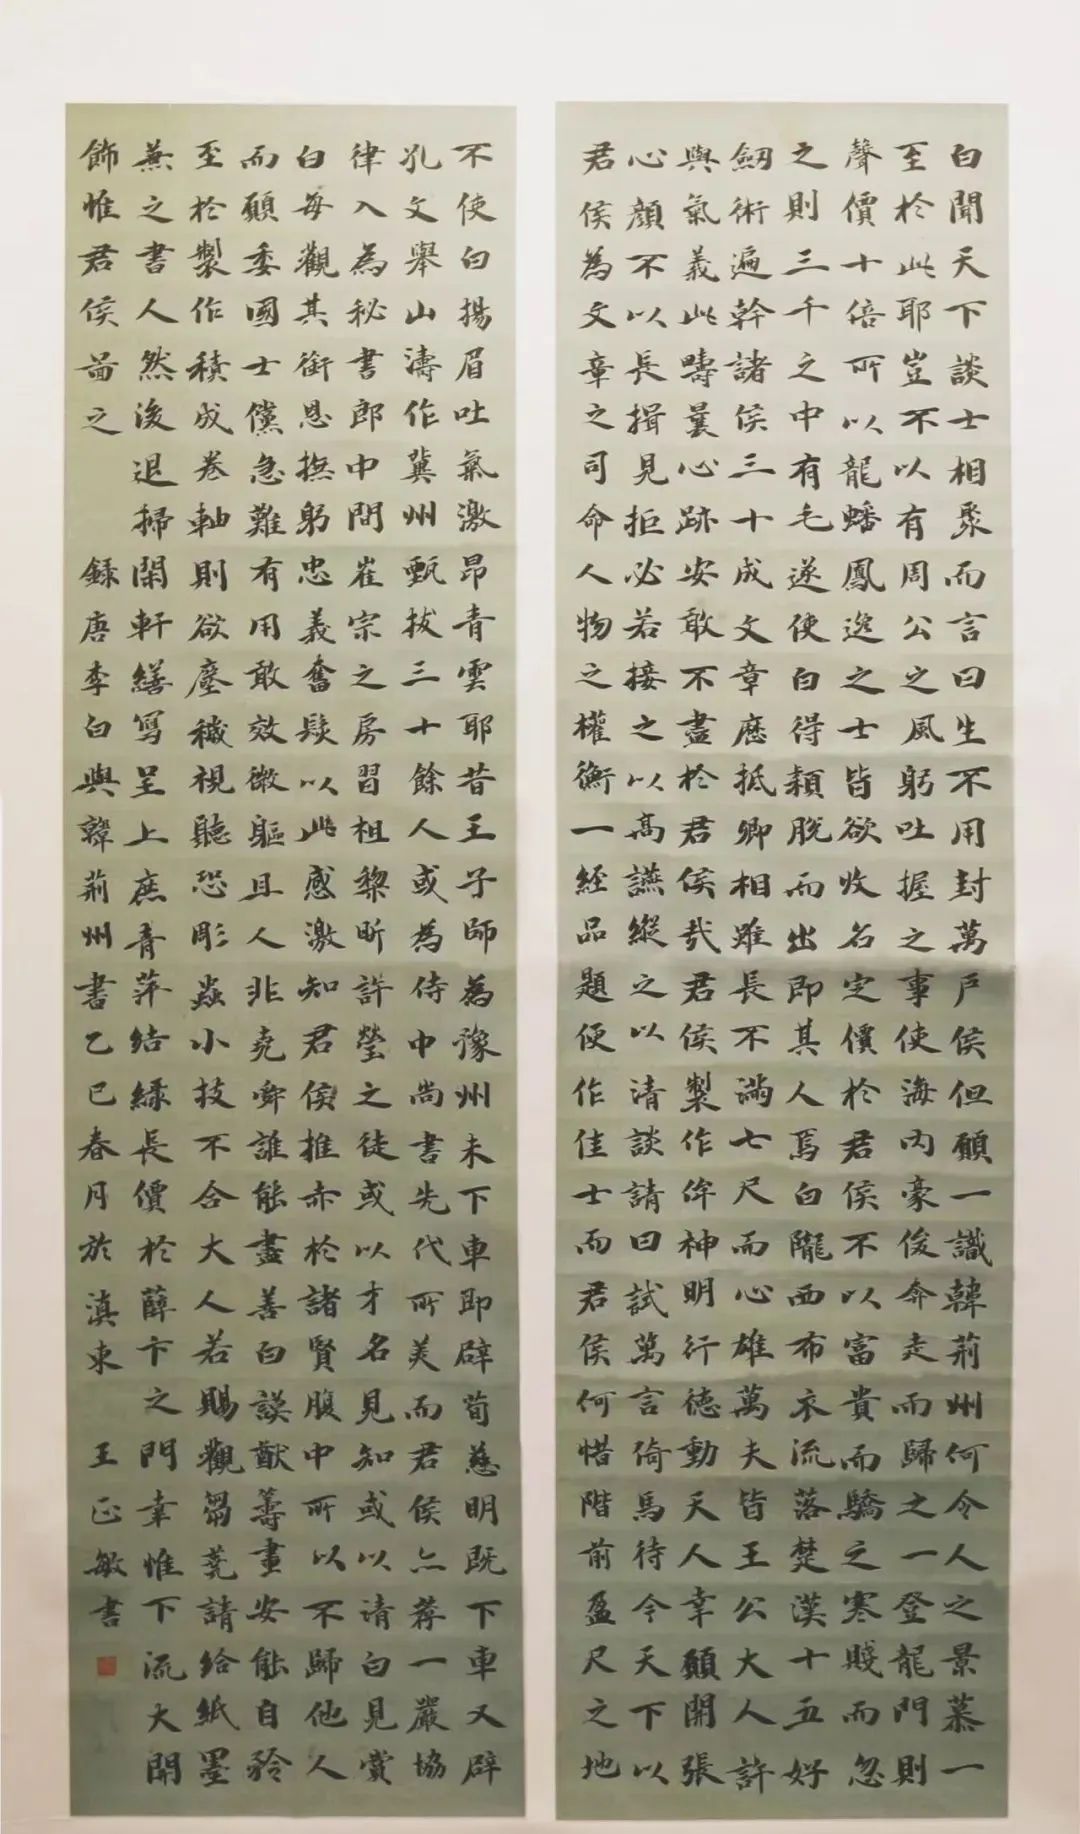 白聞天下談士相聚而言曰生不用封萬戶侯但願一識韓荊州何令人之景慕一
至於此耶豈不以有周公之風躬吐握之事使海內豪俊奔走而歸之一登龍門則
聲價十倍所以龍蟠鳳逸之士皆欲收名定價於君侯不以富貴而驕之寒賤而忽
之則三千之中有毛遂使白得穎脫而出即其人焉白隴西布衣流落楚漢十五好
劒術遍幹諸侯三十成文章歷抵卿相雖長不滿七尺而心雄萬夫皆王公大人許
與氣義此疇曩心跡安敢不盡於君侯哉君侯製作侔神明行德動天人幸願開張
心顏不以長揖見拒必若接之以高讌縱之以清談請曰試萬言倚馬待今天下以
君侯為文章之司命人物之權衡一經品題便作佳士而君侯何惜階前盈尺之地
不使白揚眉吐氣激昂青雲耶昔王子師為豫州未下車即辟荀慈明既下車又辟
孔文舉山濤作冀州甄拔三十餘人或為侍中尚書先代所美而君侯亦荐一嚴協
律入為秘書郎中間崔宗之房習祖黎昕許瑩之徒或以才名見知或以清白見賞
白每觀其銜恩撫躬忠義奮發以此感激知君侯推赤於諸賢腹中所以不歸他人
而願委國士儻急難有用敢效微軀且人非堯舜誰能盡善白謨猷籌畫安能自矜
至於製作積成卷軸則欲塵穢視聽恐彫蟲小技不合大人若賜觀芻蕘請給紙墨
兼之書人然後退掃閑軒繕寫呈上庶青萍結綠長價於薛卞之門幸惟下流大開
飾惟君侯啚之 錄唐李白與韓荊州書乙巳春月於滇東 王正敏書